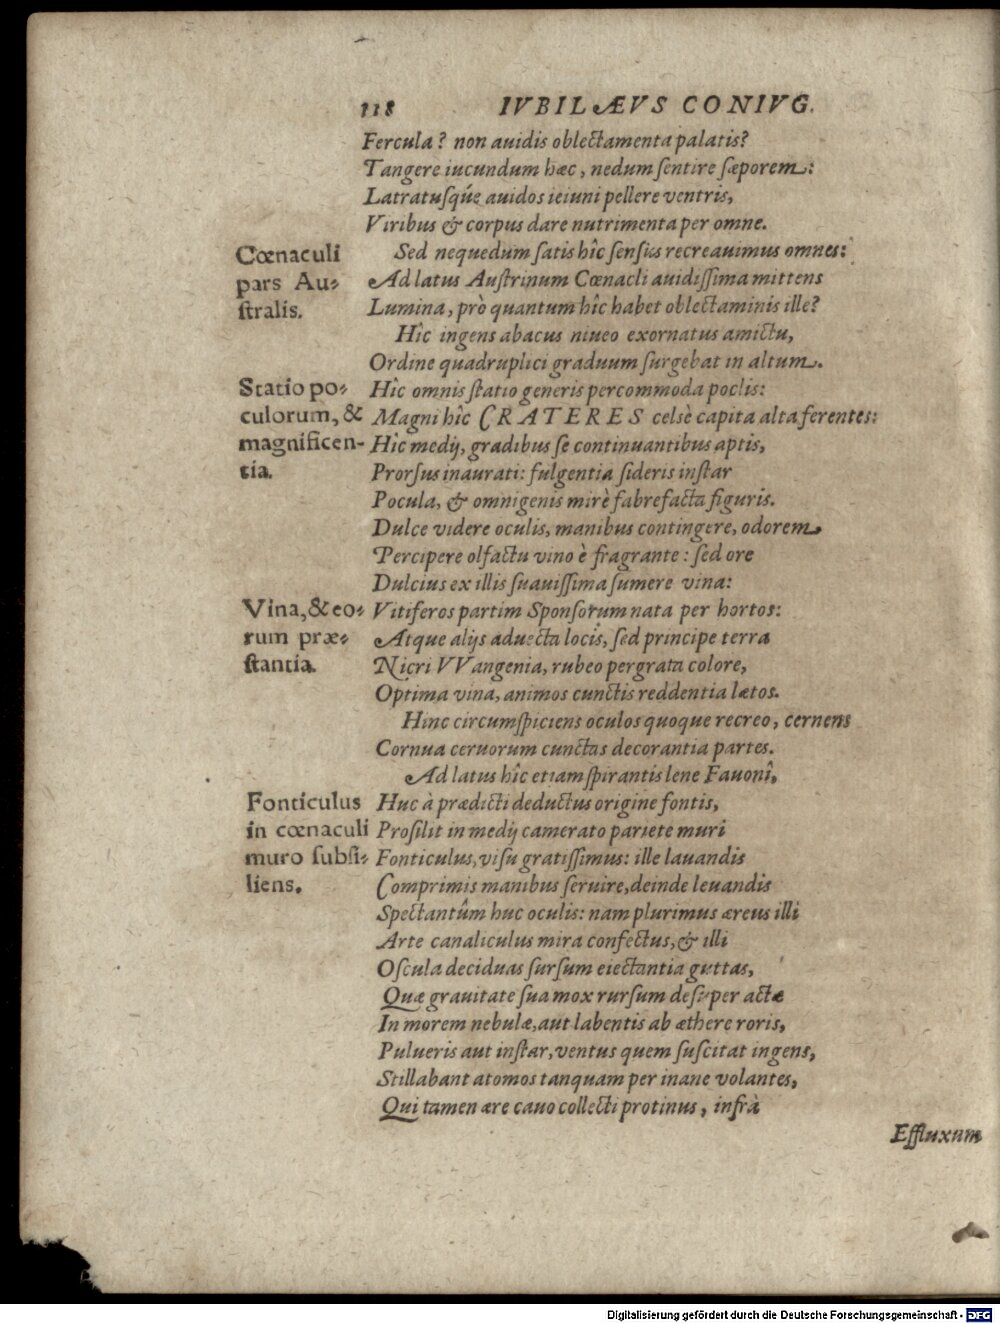 118 IVBILÆVS CONIVG.
Fercula? non auidis oblectamenta palatis?
Tangere iucundum hæc, nedum ſentire ſæporem:
Latratuſq́ue auidos ieiuni pellere ventris,
Viribus & corpus dare nutrimenta per omne.
Cœnaculi
pars Au-
ſtralis.
Sed nequedum ſatis hîc ſenſus recreauimus omnes:
Ad latus Auſtrinum Cœnacli auidiſſima mittens
Lumina, prò quantum hîc habet oblectaminis ille?
Hîc ingens abacus niueo exornatus amictu,
Ordine quadruplici graduum ſurgebat in altum.
Statio po-
culorum, &
magnificen-
tia.
Hîc omnis ſtatio generis percommoda poclis:
Magni hîc CRATERES celsè capita alta ferentes:
Hîc medij, gradibus ſe continuantibus aptis,
Prorſus inaurati: fulgentia ſideris inſtar
Pocula, & omnigenis mirè fabrefacta figuris.
Dulce videre oculis, manibus contingere, odorem
Percipere olfactu vino è fragrante: ſed ore
Dulcius ex illis ſuauiſſima ſumere vina:
Vina, & eo-
rum præ-
ſtantia.
Vitiferos partim Sponſorum nata per hortos:
Atque alijs aduecta locis, ſed principe terra
Nicri VVangenia, rubeo pergrata colore,
Optima vina, animos cunctis reddentia lætos.
Hinc circumſpiciens oculos quoque recreo, cernens
Cornua ceruorum cunctas decorantia partes.
Ad latus hîc etiam ſpirantis lene Fauonî,
Fonticulus
in cœnaculi
muro ſubſi-
liens.
Huc à prædicti deductus origine fontis,
Proſilit in medij camerato pariete muri
Fonticulus, viſu gratiſſimus: ille lauandis
Comprimis manibus ſeruire, deinde leuandis
Spectantûm huc oculis: nam plurimus æreus illi
Arte canaliculus mira confectus, & illi
Oſcula deciduas ſurſum eiectantia guttas,
Quæ grauitate ſua mox rurſum deſuper actæ
In morem nebulæ, aut labentis ab æthere roris,
Pulueris aut inſtar, ventus quem ſuſcitat ingens,
Stillabant atomos tanquam per inane volantes,
Qui tamen ære cauo collecti protinus, infrà
Effluxum
Digitalisierung gefördert durch die Deutsche Forschungsgemeinschaft - DFG